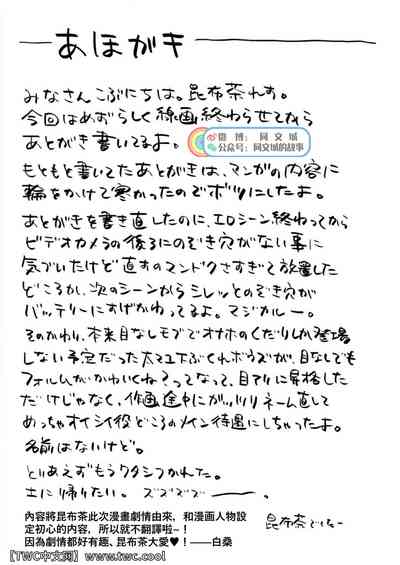 あほがき
みなさんこぶにちは。昆布茶れす。
今回はめずらしく線画終わらせてから
あとがき書いてるよ。
微博：同文城
公众号：同文城的故事
もともと書いてたあとがきは、マンガの内容に
輪をかけて寒かったのでボツにしたよ。
あとがきを書き直したのに、エロシーン終わってから
ビデオカメラの後ろにのぞき穴がない事に
気づいたけど直すのマンドクさすぎて放置した
どころか、次のシーンからシレッとのぞき穴が
バッテリーにすげかわってるよ。マジカルー。
そのかわり、本来目なしモブでオナホのくだりしか登場
しない予定だった太マユ下ぶくれボウズが、目なしでも
フォルムがかわいくね？ってなって、目アリに昇格した
だけじゃなく、作画途中にガッツリネーム直して
めっちゃオイシイ役どころのメイン待遇にしちゃったよ。
名前はないけど。
とりあえずもうクタクタつかれた。
土に帰りたい。ズズズズ――。
昆布茶でした
內容將昆布茶此次漫畫劇情由來，和漫画人物設
定初心的內容，所以就不翻譯啦~！
因為劇情都好有趣、昆布茶大愛♥！——白桑
【TWC中文网】www.twc.cool